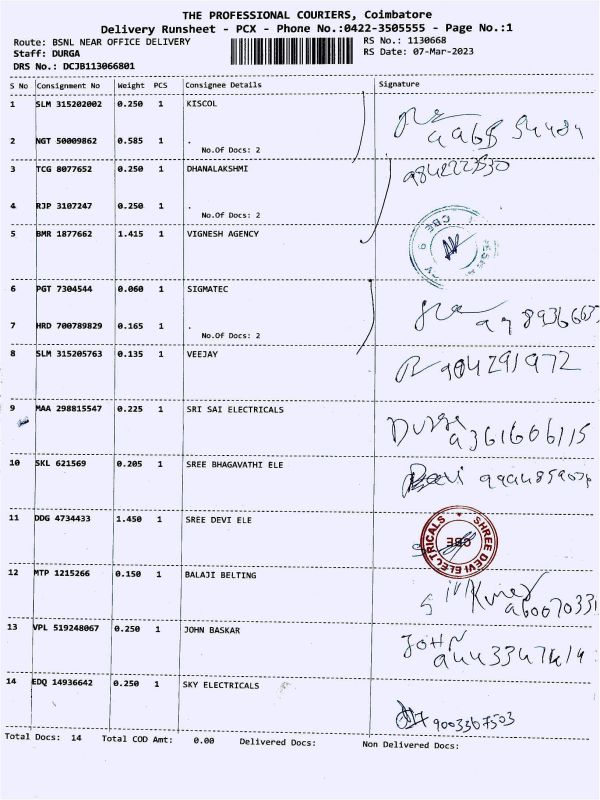 THE PROFESSIONAL COURIERS, Coimbatore
Delivery Runsheet - PCX - Phone No.:0422-3505555 - Page No.:1
Route: BSNL NEAR OFFICE DELIVERY RS No.: 1130668
Staff: DURGA RS Date: 07-Mar-2023
DRS No.: DCJB113066801
S No Consignment No Weight PCS Consignee Details Signature
1 SLM 315202002 0.250 1 KISCOL
2 NGT 50009862 0.585 1 .
No.Of Docs: 2
3 TCG 8077652 0.250 1 DHANALAKSHMI 9842223530
4 RJP 3107247 0.250 1 .
No.Of Docs: 2
5 BMR 1877662 1.415 1 VIGNESH AGENCY
CBE 9
6 PGT 7304544 0.060 1 SIGMATEC
7 HRD 700789829 0.165 1 .
No.Of Docs: 2
8 SLM 315205763 0.135 1 VEEJAY
9 MAA 298815547 0.225 1 SRI SAI ELECTRICALS Durga
9361606115
10 SKL 621569 0.205 1 SREE BHAGAVATHI ELE Devi
11 DDG 4734433 1.450 1 SREE DEVI ELE
SHREE DEVI ELECTRICALS CBE
12 MTP 1215266 0.150 1 BALAJI BELTING
13 VPL 519248067 0.250 1 JOHN BASKAR JOHN
14 EDQ 14936642 0.250 1 SKY ELECTRICALS
9003367503
Total Docs: 14 Total COD Amt: 0.00 Delivered Docs: Non Delivered Docs: